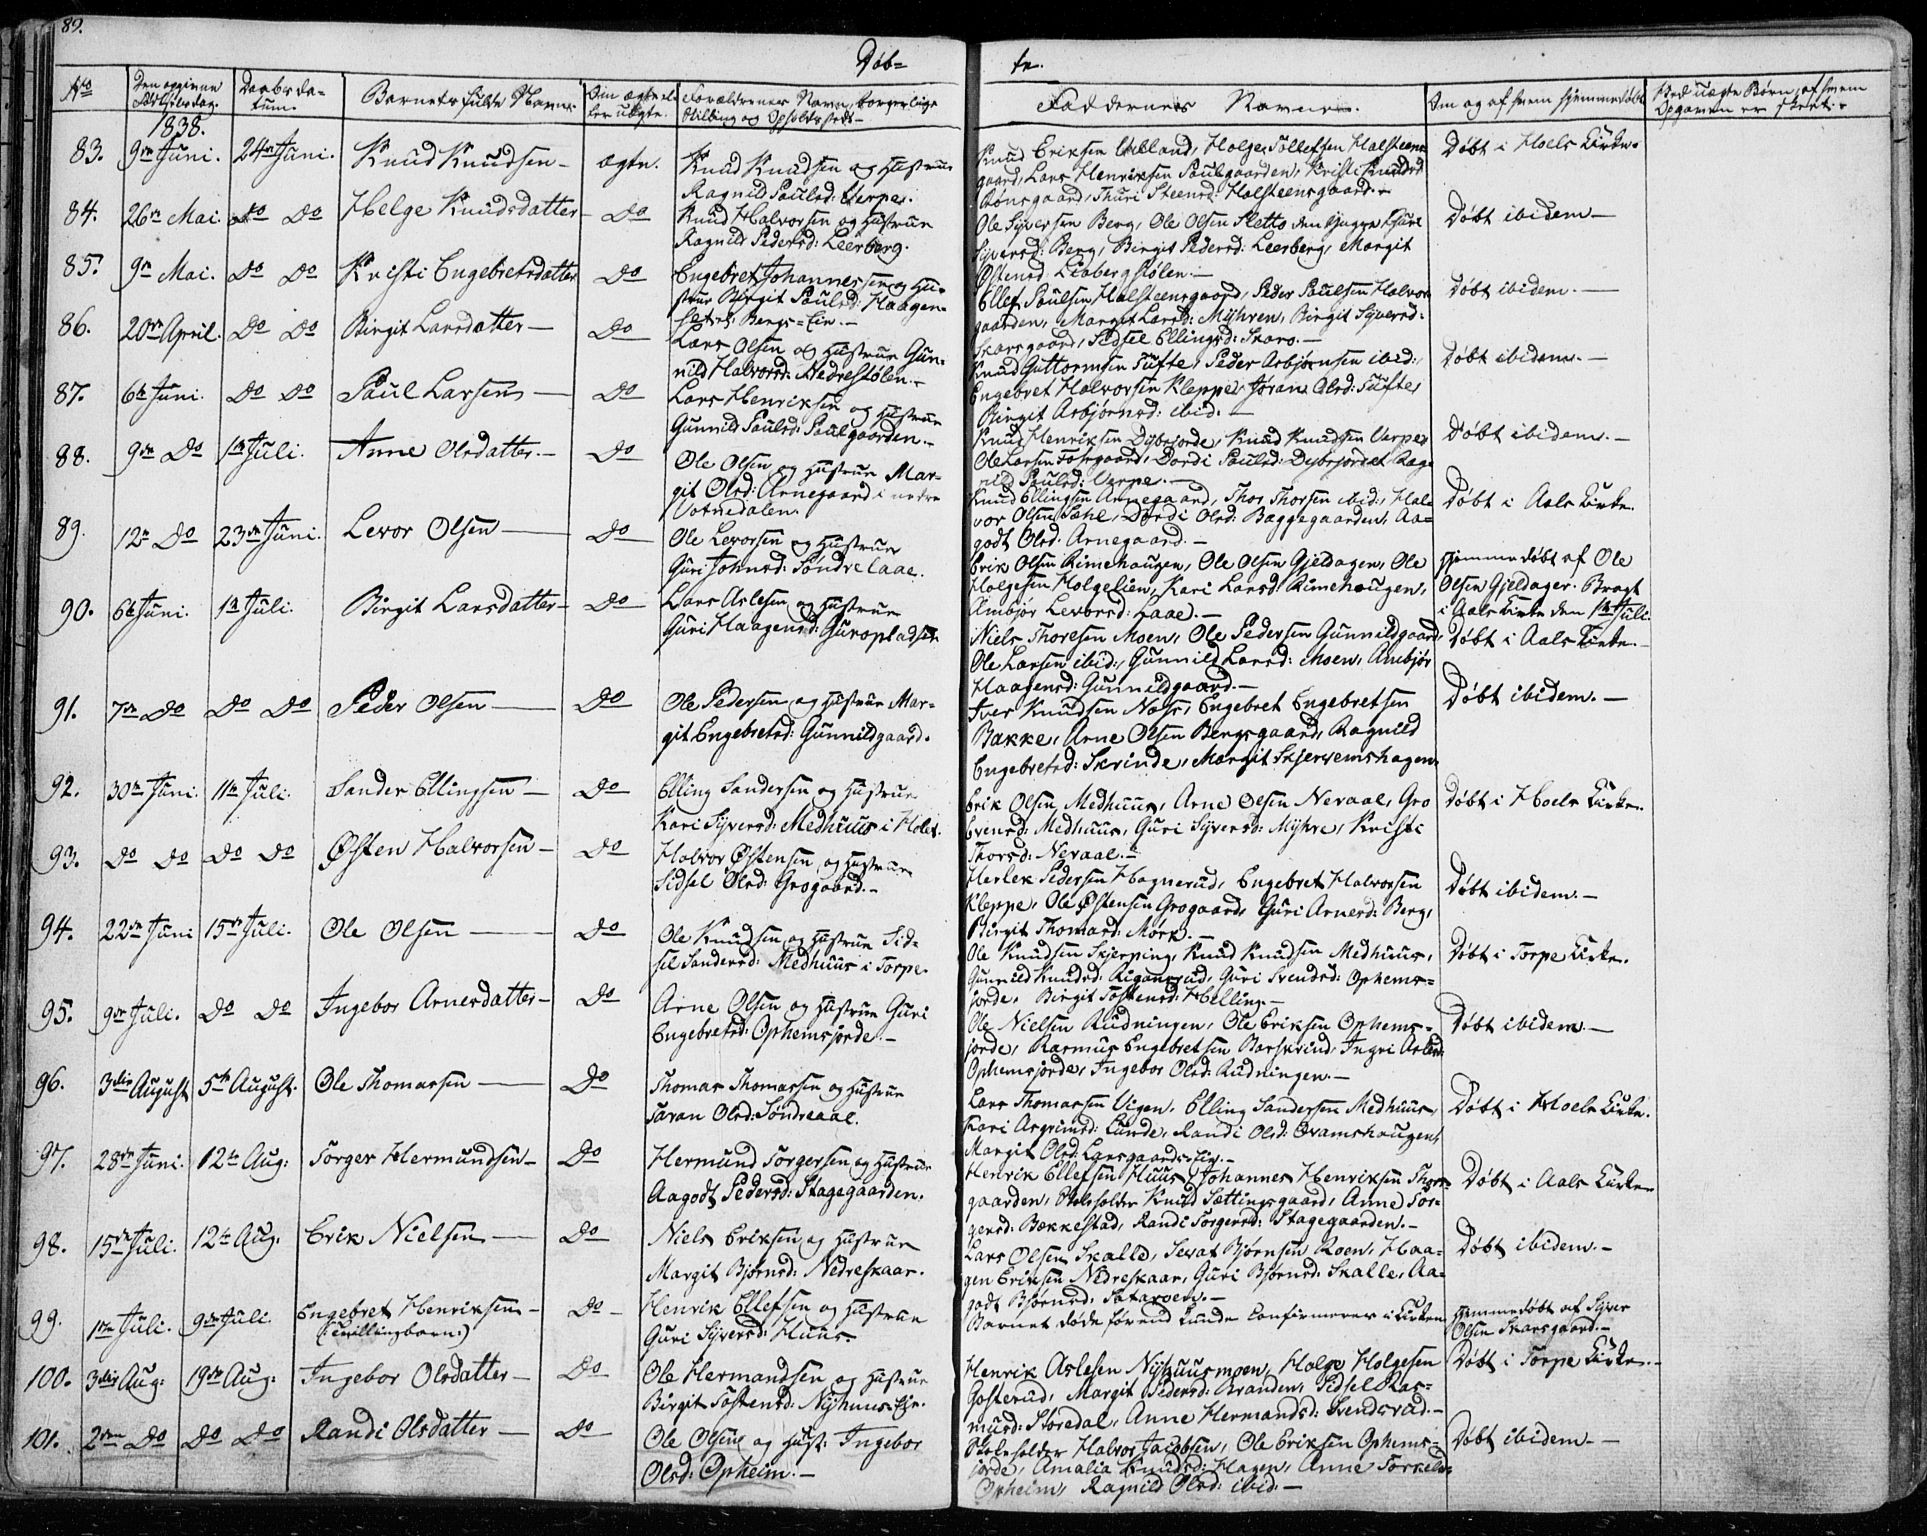 89.
Døb=
te.
No
Den opgivne Fødselsdag.
Daabsda-
tum.
Barnets fulde Navn.
Om ægte el-
ler uægte.
Forældrenes Navn, borgerlige
Stilling og Opholdssted.
Faddernes Navne.
Om og af hvem hjemmedøbt
Ved uægte Børn, af hvem
Opgaven er skeet.
1838.
83. 9de Juni. 24de Juni. Knud Knudsen – ægte.
Knud Knudsen og Hustrue
Ragnild Paulsd: Verpe.
Knud Eriksen Ulsland, Holge Tollefsen Halsteens-
gaard, Lars Henriksen Paulgaarden, Kristi Knudsd
Rønsgaard, Thuri Steensd: Halsteensgaard.–
Døbt i Hoels Kirke.
84. 26de Mai. do do Helge Knudsdatter – do
Knud Halvorsen og Hustrue
Ragnild Pedersd: Leerberg.
Ole Syversen Berg, Ole Olsen Sletto den yngre, Thuri
Syversd: Berg, Birgit Pedersd: Leerberg, Margit
Østensd Liabergstølen.–
Døbt ibidem.–
85. 9de Mai. do do Kristi Engebretsdatter do
Engebret Johannessen og Hu-
strue Birgit Paulsd: Haagen-
sletred: Bergs-Eie.–
Ellef Paulsen Halsteensgaard, Peder Paulsen Halvor-
gaarden, Margit Larsd: Myhren, Birgit Syversd:
Skarsgaard, Sidsel Ellingsd: Skaro.–
Døbt ibidem.–
86. 20de April. do do Birgit Larsdatter – do
Lars Olsen og Hustrue Gun-
nild Halvorsd: Nedrestølen.–
Knud Guttormsen Tufte, Peder Asbjørnsen ibid:,
Engebret Halvorsen Kleppe, Jøran Olsd: Tufte,
Birgit Asbjørnsd: ibid:–
Døbt ibidem.–
87. 6te Juni. do do Paul Larsen – do
Lars Henriksen og Hustrue
Gunnild Paulsd: Paulgaarden.–
Knud Henriksen Dybesjorde, Knud Knudsen Verpe,
Ole Larsen Fossgaard, Dordi Paulsd: Dybesjordet, Rag-
nild Paulsd: Verpe.–
Døbt ibidem.–
88. 9de do 1ste Juli. Anne Olsdatter.– do
Ole Olsen og Hustrue Mar-
git Olsd: Arnegaard i nedre
Votnedalen.
Knud Ellingsen Arnegaard, Thor Thorsen ibid:, Hal-
vor Olsen Sæhl, Dordi Olsd: Baggegaarden, Aa-
godt Olsd: Arnegaard.–
Døbt i Aals Kirke.
89. 12te do 23de Juni. Levor Olsen – do
Ole Levorsen og Hustrue
Guri Johnsd: Søndre Laae.
Erik Olsen Rimehaugen, Ole Olsen Gjeldagen, Ole
Holgesen Holgelien, Kari Larsd: Rimehaugen,
Ambjør Levorsd: Laae.–
Hjemmedøbt af Ole
Olsen Gjeldager. Bragt
i Aals Kirke den 1ste Juli.
90. 6te Juni. 1ste Juli. Birgit Larsdatter – do
Lars Aslesen og Hustrue
Guri Haagensd: Guroplads.
Niels Thoresen Moen, Ole Pedersen Gunnildgaard,
Ole Larsen ibid:, Gunnild Larsd: Moen, Ambjør
Haagensd: Gunnildgaard.–
Døbt i Aals Kirke.–
91. 7de do do do Peder Olsen – do
Ole Pedersen og Hustrue Mar-
git Engebretsd: Gunnildgaard.
Iver Knudsen Næss, Engebret Engebretsen
Bække, Arne Olsen Bergsgaard, Ragnild
Engebretsd: Skrinde, Margit Skjervemshagen.
Døbt ibidem.–
92. 30te Juni. 11te Juli. Sander Ellingsen – do
Elling Sandersen og Hustrue
Kari Syversd: Medhuus i Holet.
Erik Olsen Medhuus, Arne Olsen Nevaal, Gro
Evensd: Medhuus, Guri Syversd: Myhre, Kristi
Thorsd: Nevaal.–
Døbt i Hoels Kirke.
93. do do do do Østen Halvorsen – do
Halvor Østensen og Hustrue
Sidsel Olsd: Grogaard.–
Herlek Pedersen Hagnerud, Engebret Halvorsen
Kleppe, Ole Østensen Grogaard, Guri Arnesd: Berg,
Birgit Thomasd: Mørk.–
Døbt ibidem.–
94. 22de Juni 15de Juli. Ole Olsen – do
Ole Knudsen og Hustrue Sid-
sel Sandersd: Medhuus i Torpe.
Ole Knudsen Skjerping, Knud Knudsen Medhuus,
Gunnild Knudsd: Rigansrud, Guri Svendsd: Ophems-
jorde, Birgit Tostensd: Helling.–
Døbt i Torpe Kirke.
95. 9de Juli. do do Ingebor Arnesdatter – do
Arne Olsen og Hustrue Guri
Engebretsd: Ophemsjorde.–
Ole Nielsen Rudningen, Ole Eriksen Ophems-
jorde, Rasmus Engebretsen Barskrind, Ingri Aslesd:
Ophemsjorde, Ingebor Olsd: Rudningen.–
Døbt ibidem.–
96. 3die August 5te August. Ole Thomassen – do
Thomas Thomassen og Hustrue
Jøran Olsd: Søndreaal.
Lars Thomassen Vigen, Elling Sandersen Medhuus,
Kari Asgrimsd: Lunde, Randi Olsd: Qvamshaugen,
Margit Olsd: Larsgaards-Eie.–
Døbt i Hoels Kirke.
97. 28de Juni. 12te Aug: Torger Hermundsen – do
Hermund Torgersen og Hustrue
Aagodt Pedersd: Stagegaarden.
Henrik Ellefsen Huus, Johannes Henriksen Thors-
gaarden, Skoleholder Knud Sættingsgaard, Anne Tor-
gersd: Bækkestad, Randi Torgersd: Stagegaarden.–
Døbt i Aals Kirke
98. 15de Juli. 12te Aug: Erik Nielsen – do
Niels Eriksen og Hustrue
Margit Bjørnsd: Nedreskaar.
Lars Olsen Skalle, Sevat Bjørnsen Roen, Haa-
gen Eriksen Nedreskaar, Guri Bjørnsd: Skalle, Aa-
godt Bjørnsd: Sataroen.–
Døbt ibidem.–
99. 1ste Juli. 9de Juli. Engebret Henriksen –
(:tvillingbarn:)
do –
Henrik Ellefsen og Hustrue
Guri Syversd: Huus.
Barnet døde før end kunde Confirmeres i Kirken
Hjemmedøbt af Syver
Olsen Skarsgaard.–
100. 3die Aug: 19de Aug: Ingebor Olsdatter – do
Ole Hermandsen og Hustrue
Birgit Tostensd: Nyhuus-Eje.
Henrik Aslesen Nyhuusmoen, Holge Holgesen
Gosterud, Margit Pedersd: Branden, Sidsel Ras-
musd: Støredal, Anne Hermandsd: Svendsrud.–
Døbt i Torpe Kirke.–
101. 2den do do do Randi Olsdatter – do
Ole Olsen og Hust: Ingebor
Olsd: Opheim.–
Skoleholder Halvor Jacobsen, Ole Eriksen Ophems-
jorde, Amalia Knudsd: Hagen, Anne Torkelsd
Opheim, Ragnild Olsd: ibid.–
Døbt ibidem.–